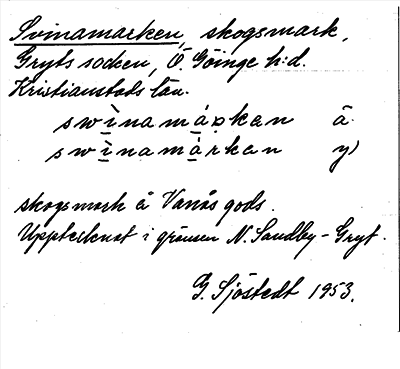 Svinamarken, skogsmark,
Gryts socken, Ö. Göinge h:d.
Kristianstads län.
swìnamárkan ä.
swìnamàrkan y)
skogsmark å Vanås gods.
Upptecknat i gränsen N. Sandby-Gryt.
G. Sjöstedt 1953.